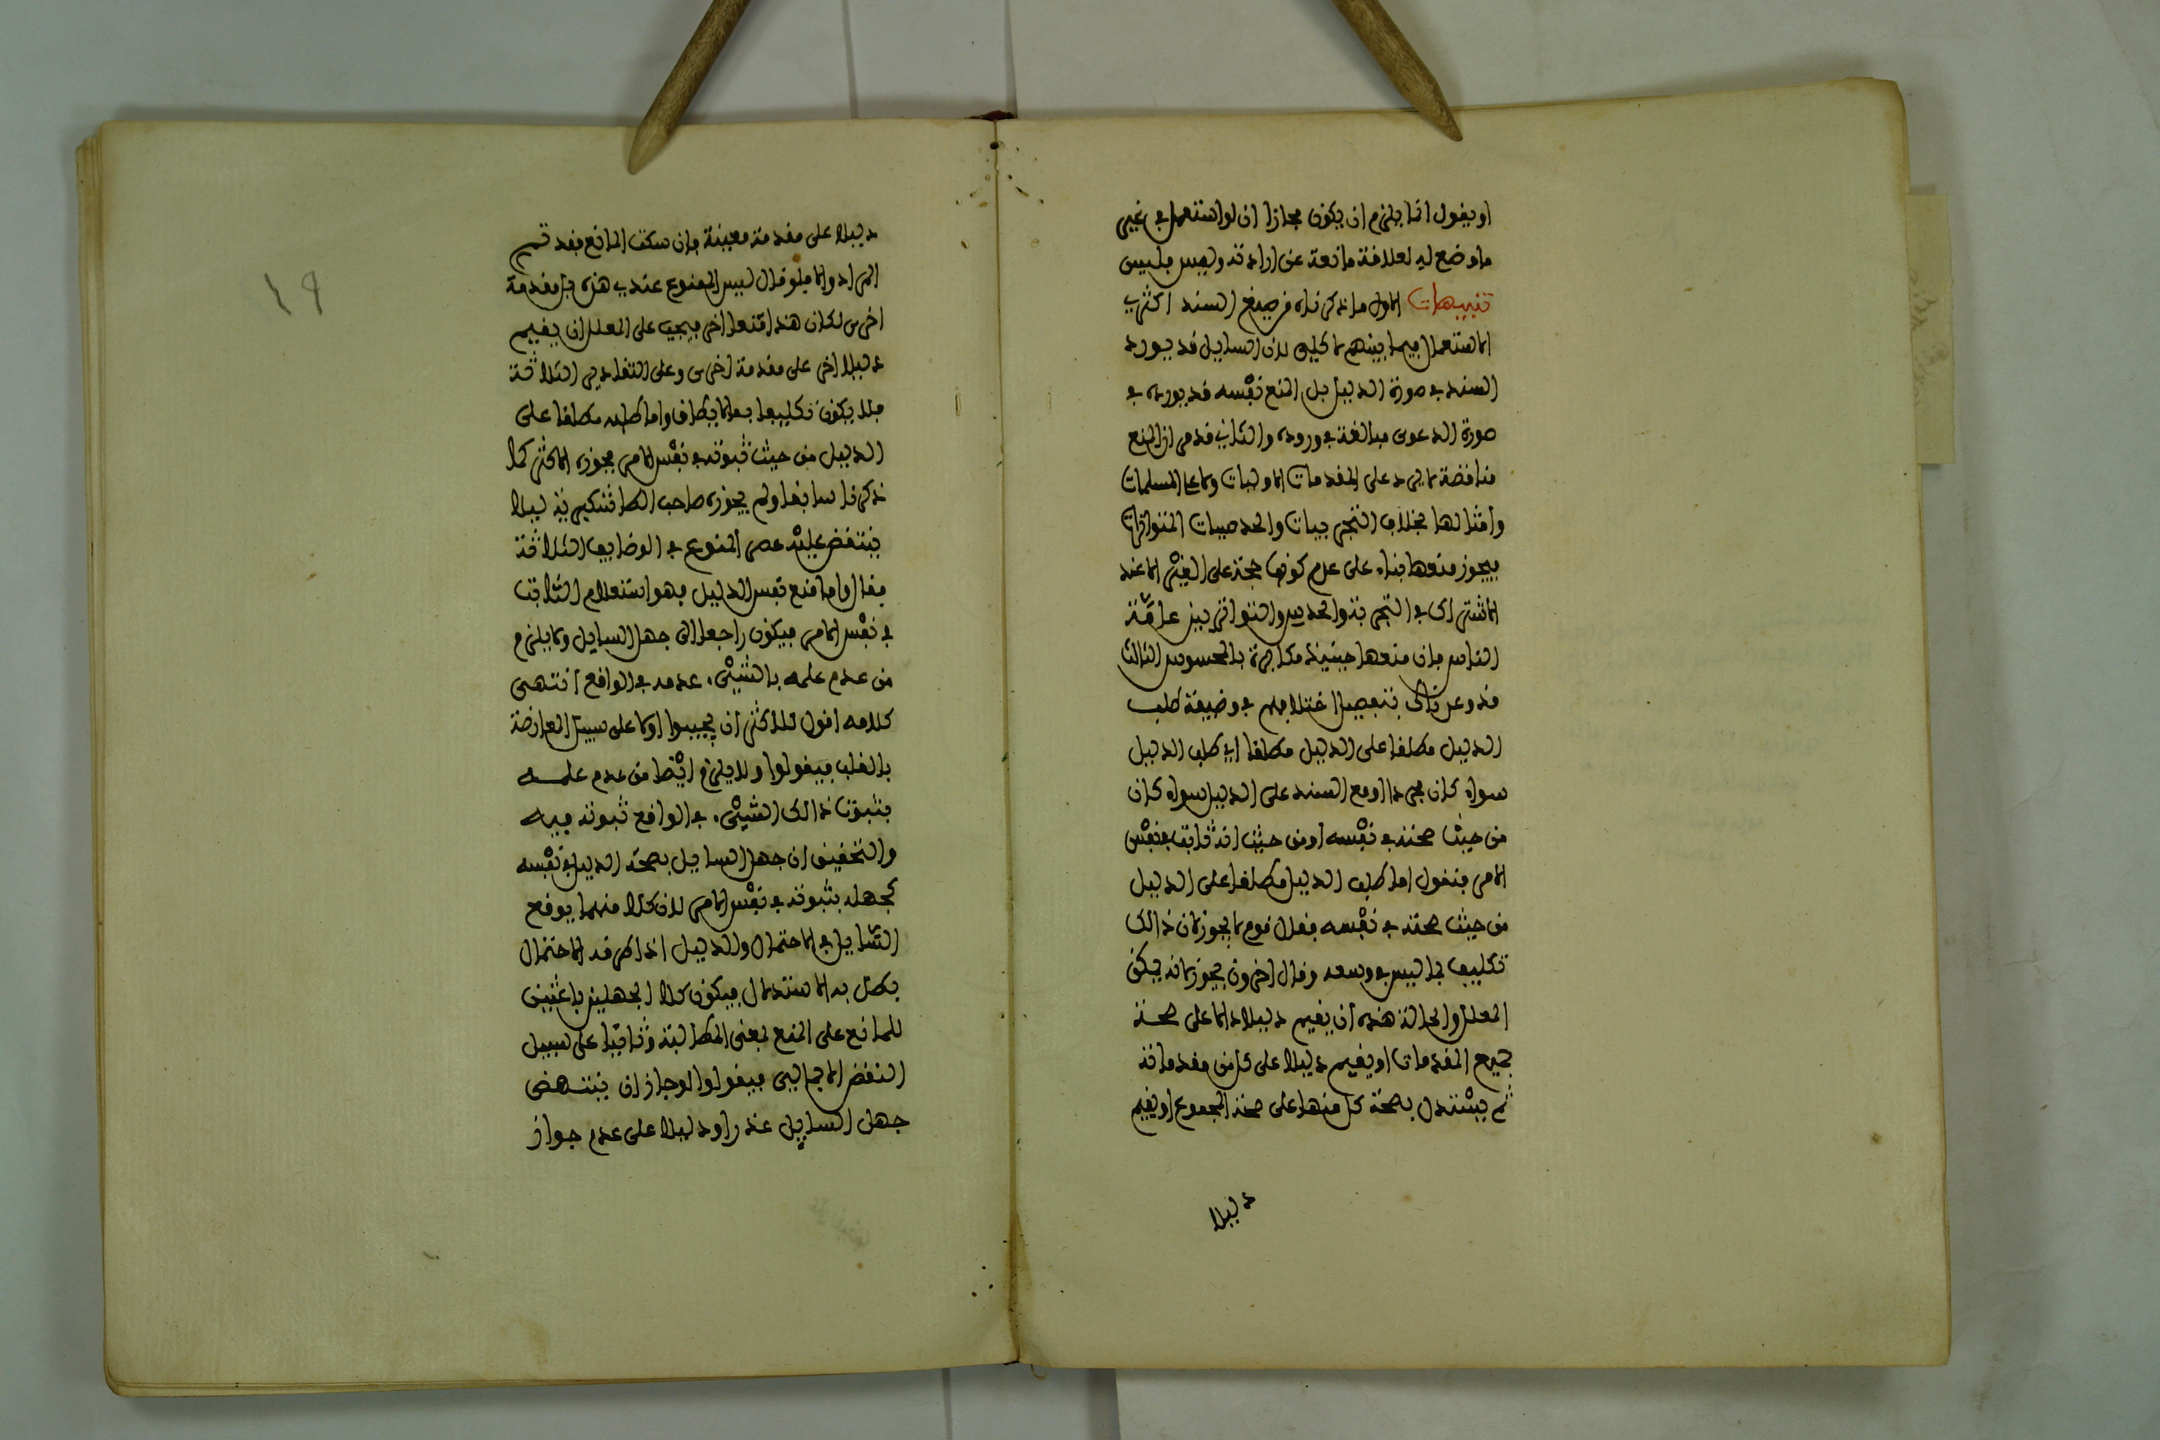 او يقول انما يلزم ان يكون مجازا ان لو استعمل في غير
ما وضع له لعلاقة مانعة عن ارادته وليس فليس
تنبيهات الاول ما ذكرناه من صيغ السند اكثري
الاستعمال فيما بينهم لا كلي لان السايل قد يورد
السند في صورة الدليل بل المنع نفسه قد يورده في
صورة الدعوى مبالغة في وروده والثاني قد مر ان المنع
مناقضة لا يرد على المقدمات الاوليات ولا على المسلمات
وامثالها بخلاف التجربيات والحدسيات المتواترات
فيجوز منعها بناء على عدم كونها حجة على الغير الا عند
الاشتراك في التجربة والحدس والتواتر بين عامة
الناس فان منعها حينيذ مكابرة بالمحسوس الثالث
قد وعدناك بتفصيل اختلافهم في وظيفة طلب
الدليل مطلقا على الدليل مطلقا اي طلب الدليل
سواء كان مجردا او مع السند على الدليل سواء كان
من حيث صحته في نفسه او من حيث انه ثابت في نفس
الامر فنقول اما طلب الدليل مطلقا على الدليل
من حيث صحته في نفسه فقال قوم لا يجوز لان ذالك
تكليف بما ليس في وسعه وقال اخرون يجوز لانه يمكن
المعلل والحالة هذه ان يقيم دليلا دالا على صحة
جميع المقدمات او يقيم دليلا على كل من مقدماته
ثم يستدل بصحة كل منها على صحة المجموع او يقيم
دليلا
١٩
دليلا على مقدمة معينة فان سكت المانع فقد تم
المراد والا فلو قال ليس الممنوع عندي هذه بل مقدمة
اخرى لكان هذا منعا اخر فيجب على المعلل ان يقيم
دليلا اخر على مقدمة اخرى وعلى التقادير الثلاثة
فلا يكون تكليفا بما لا يطاق واما طلبه مطلقا على
الدليل من حيث ثبوته في نفس الامر فجوزه الاكثر كما
ذكرنا سابقا ولم يجوزه صاحب الطاشكبرية ليلا
ينتقض عليه حصر المنوع في الوظايف الثلاثة
فقال واما منع نفس الدليل فهو استعلام الثابت
في نفس الامر فيكون راجعا الى جهل السايل ولا يلزم
من عدم علمه بالشيء عدمه في الواقع انتهى
كلامه اقول للاكثر ان يجيبوا اولا على سبيل المعارضة
بالقلب فيقولوا ولا يلزم ايضا من عدم علمه
بثبوت ذالك الشيء في الواقع ثبوته فيه
والتحقيق ان جهل السايل بصحة الدليل في نفسه
كجهله بثبوته في نفس الامر لان كلا منهما يوقع
السايل في الاحتمال والدليل اذا طرقه الاحتمال
بطل به الاستدلال فيكون كلا الجهلين باعثين
للمانع على المنع بمعنى المطالبة وثانيا على سبيل
النقض الاجمالي فيقولوا لو جاز ان ينتهض
جهل السايل عذرا ودليلا على عدم جواز